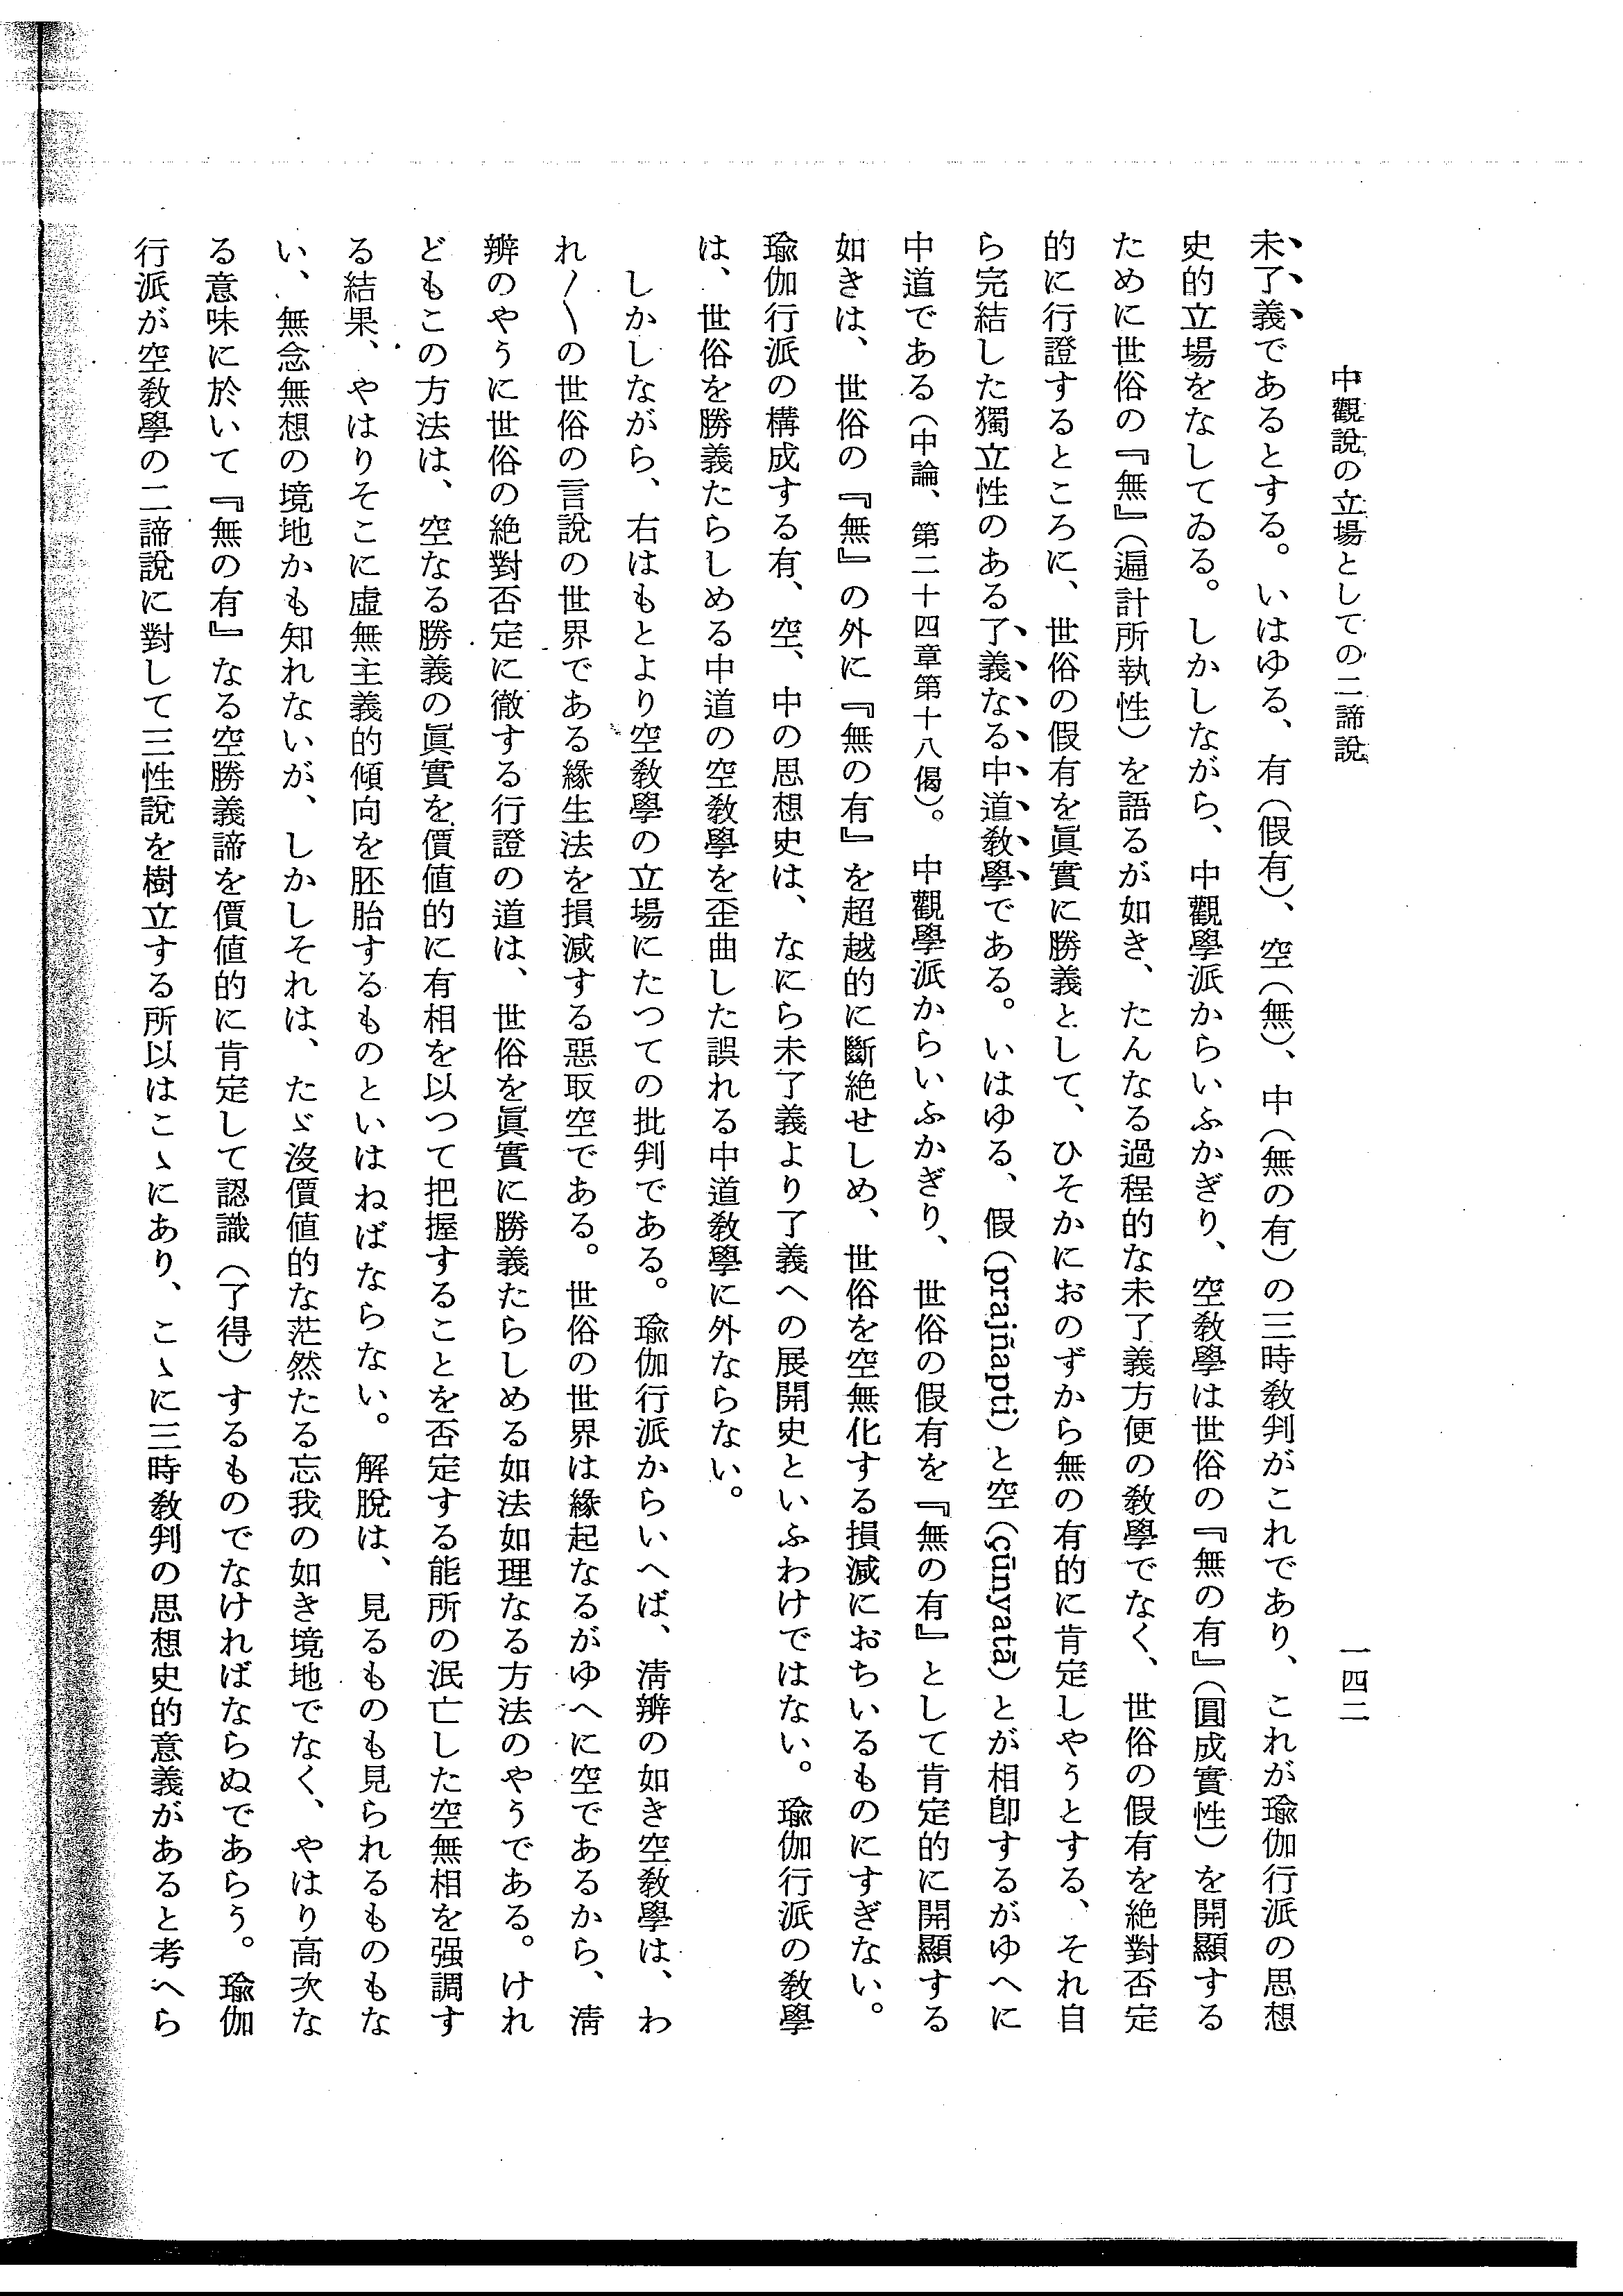 中觀說の立場としての二諦說
一四二
未了義であるとする。いはゆる、有（假有）、空（無）、中（無の有）の三時敎判がこれであり、これが瑜伽行派の思想
史的立場をなしてゐる。しかしながら、中觀學派からいふかぎり、空敎學は世俗の『無の有』（圓成實性）を開顯する
ために世俗の『無』（遍計所執性）を語るが如き、たんなる過程的な未了義方便の敎學でなく、世俗の假有を絕對否定
的に行證するところに、世俗の假有を眞實に勝義として、ひそかにおのずから無の有的に肯定しやうとする、それ自
ら完結した獨立性のある了義なる中道敎學である。いはゆる、假（prajñapti）と空（çūnyatā）とが相卽するがゆへに
中道である（中論、第二十四章第十八偈）。中觀學派からいふかぎり、世俗の假有を『無の有』として肯定的に開顯する
如きは、世俗の『無』の外に『無の有』を超越的に斷絕せしめ、世俗を空無化する損減におちいるものにすぎない。
瑜伽行派の構成する有、空、中の思想史は、なにら未了義より了義への展開史といふわけではない。瑜伽行派の敎學
は、世俗を勝義たらしめる中道の空敎學を歪曲した誤れる中道敎學に外ならない。
しかしながら、右はもとより空敎學の立場にたつての批判である。瑜伽行派からいへば、淸辨の如き空敎學は、わ
れ〳〵の世俗の言說の世界である緣生法を損減する惡取空である。世俗の世界は緣起なるがゆへに空であるから、淸
辨のやうに世俗の絕對否定に徹する行證の道は、世俗を眞實に勝義たらしめる如法如理なる方法のやうである。けれ
どもこの方法は、空なる勝義の眞實を價値的に有相を以つて把握することを否定する能所の泯亡した空無相を强調す
る結果、やはりそこに虛無主義的傾向を胚胎するものといはねばならない。解脫は、見るものも見られるものもな
い、無念無想の境地かも知れないが、しかしそれは、たゞ沒價値的な茫然たる忘我の如き境地でなく、やはり高次な
る意味に於いて『無の有』なる空勝義諦を價値的に肯定して認識（了得）するものでなければならぬであらう。瑜伽
行派が空敎學の二諦說に對して三性說を樹立する所以はこゝにあり、こゝに三時敎判の思想史的意義があると考へら